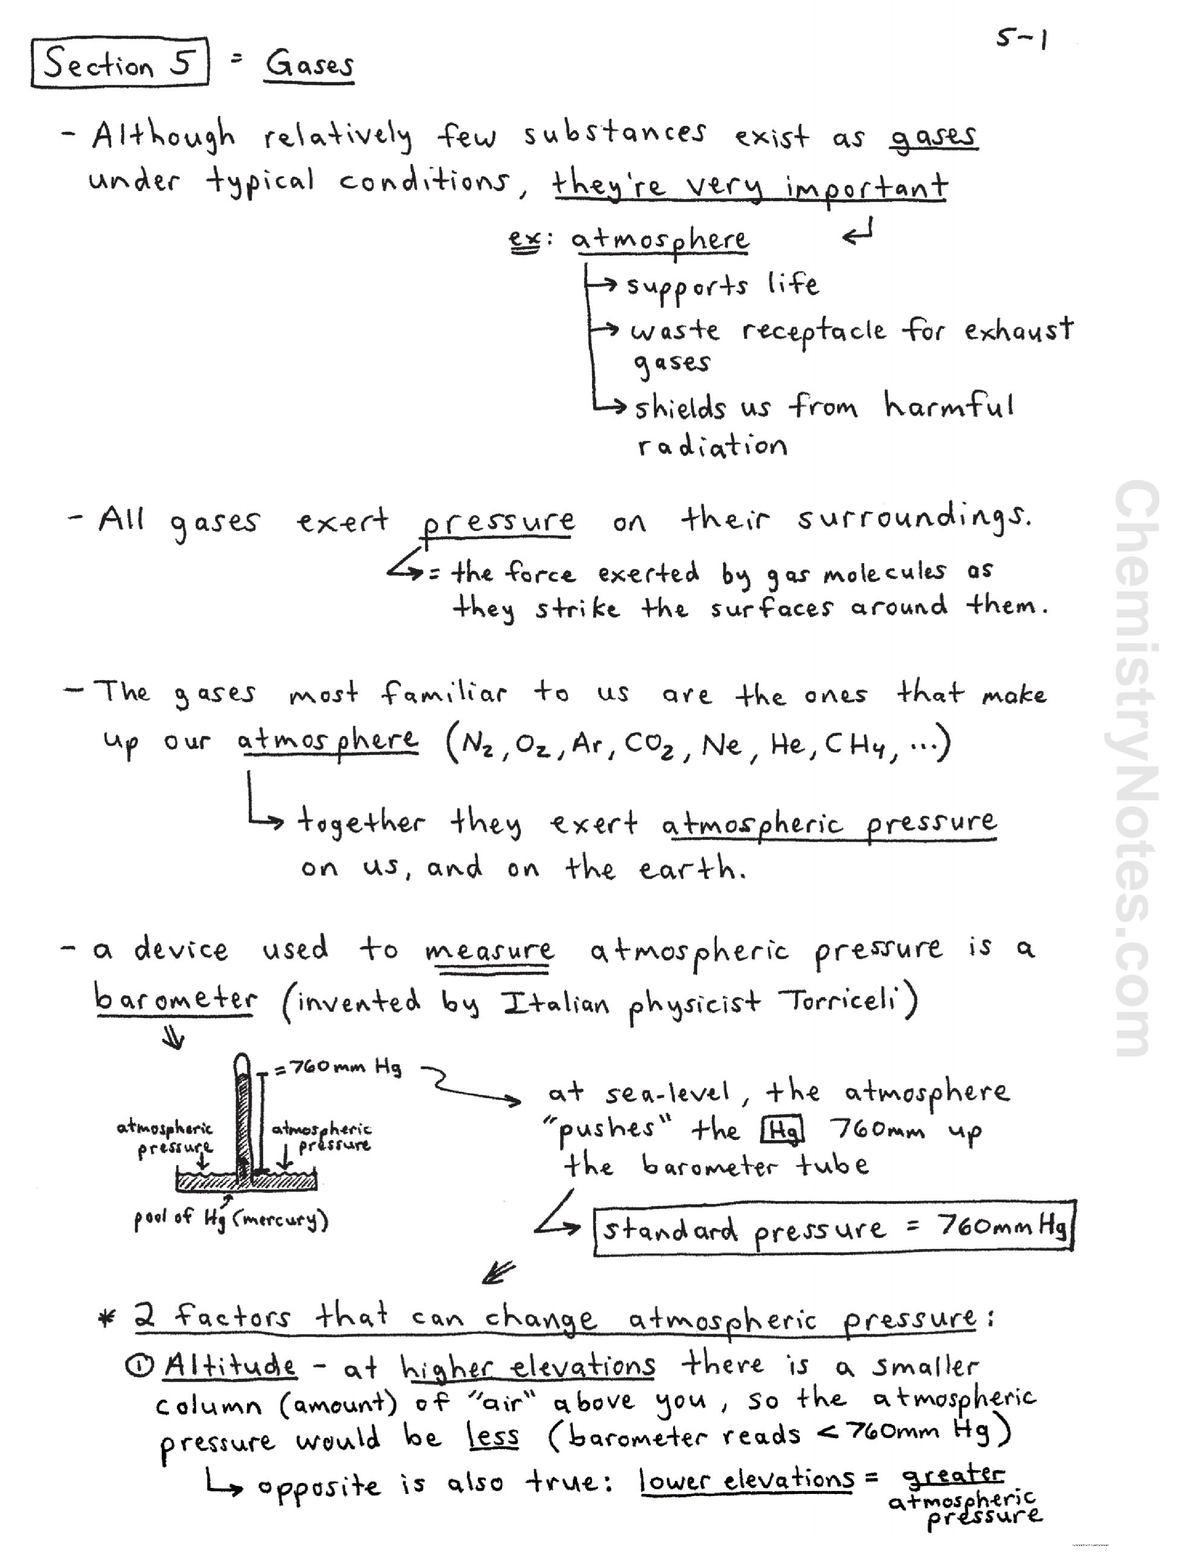 5-1
Section 5 = Gases
- Although relatively few substances exist as gases
under typical conditions, they're very important
ex: atmosphere ↵
↳ supports life
↳ waste receptacle for exhaust
gases
↳ shields us from harmful
radiation
- All gases exert pressure on their surroundings.
↳ = the force exerted by gas molecules as
they strike the surfaces around them.
- The gases most familiar to us are the ones that make
up our atmosphere (N₂, O₂, Ar, CO₂, Ne, He, CH₄, ...)
↳ together they exert atmospheric pressure
on us, and on the earth.
- a device used to measure atmospheric pressure is a
barometer (invented by Italian physicist Torriceli)
= 760mm Hg
atmospheric
pressure
atmospheric
pressure
pool of Hg (mercury)
at sea-level, the atmosphere
"pushes" the Hg 760mm up
the barometer tube
↳ standard pressure = 760mm Hg
* 2 factors that can change atmospheric pressure:
① Altitude - at higher elevations there is a smaller
column (amount) of "air" above you, so the atmospheric
pressure would be less (barometer reads < 760mm Hg)
↳ opposite is also true: lower elevations = greater
atmospheric
pressure
ChemistryNotes.com